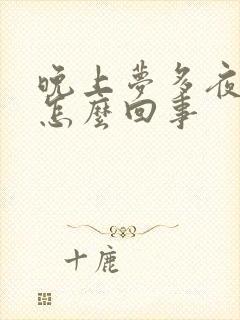 晚上夢多夜
怎麼回事
十鹿